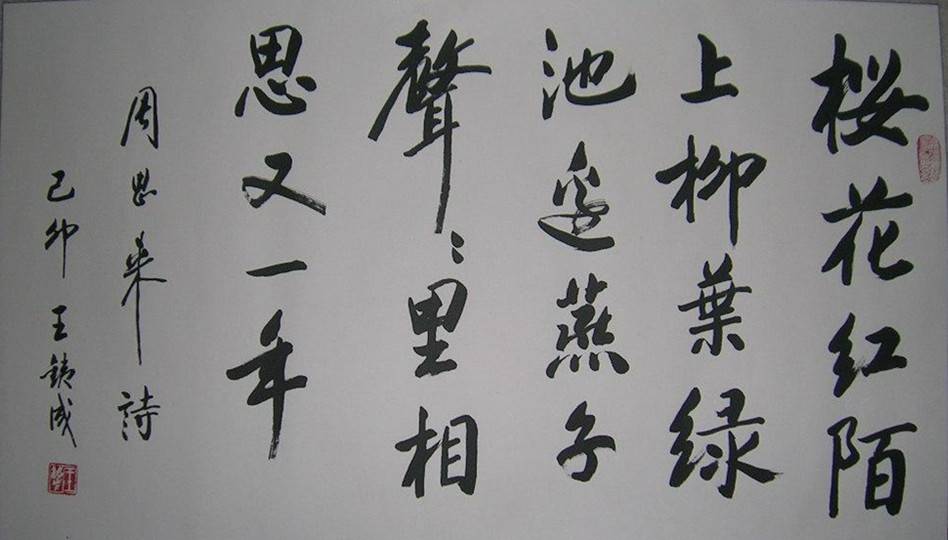 桜花红陌
上柳葉绿
池邊燕子
聲〻里相
思又一年
周恩来詩
己卯 王銕成